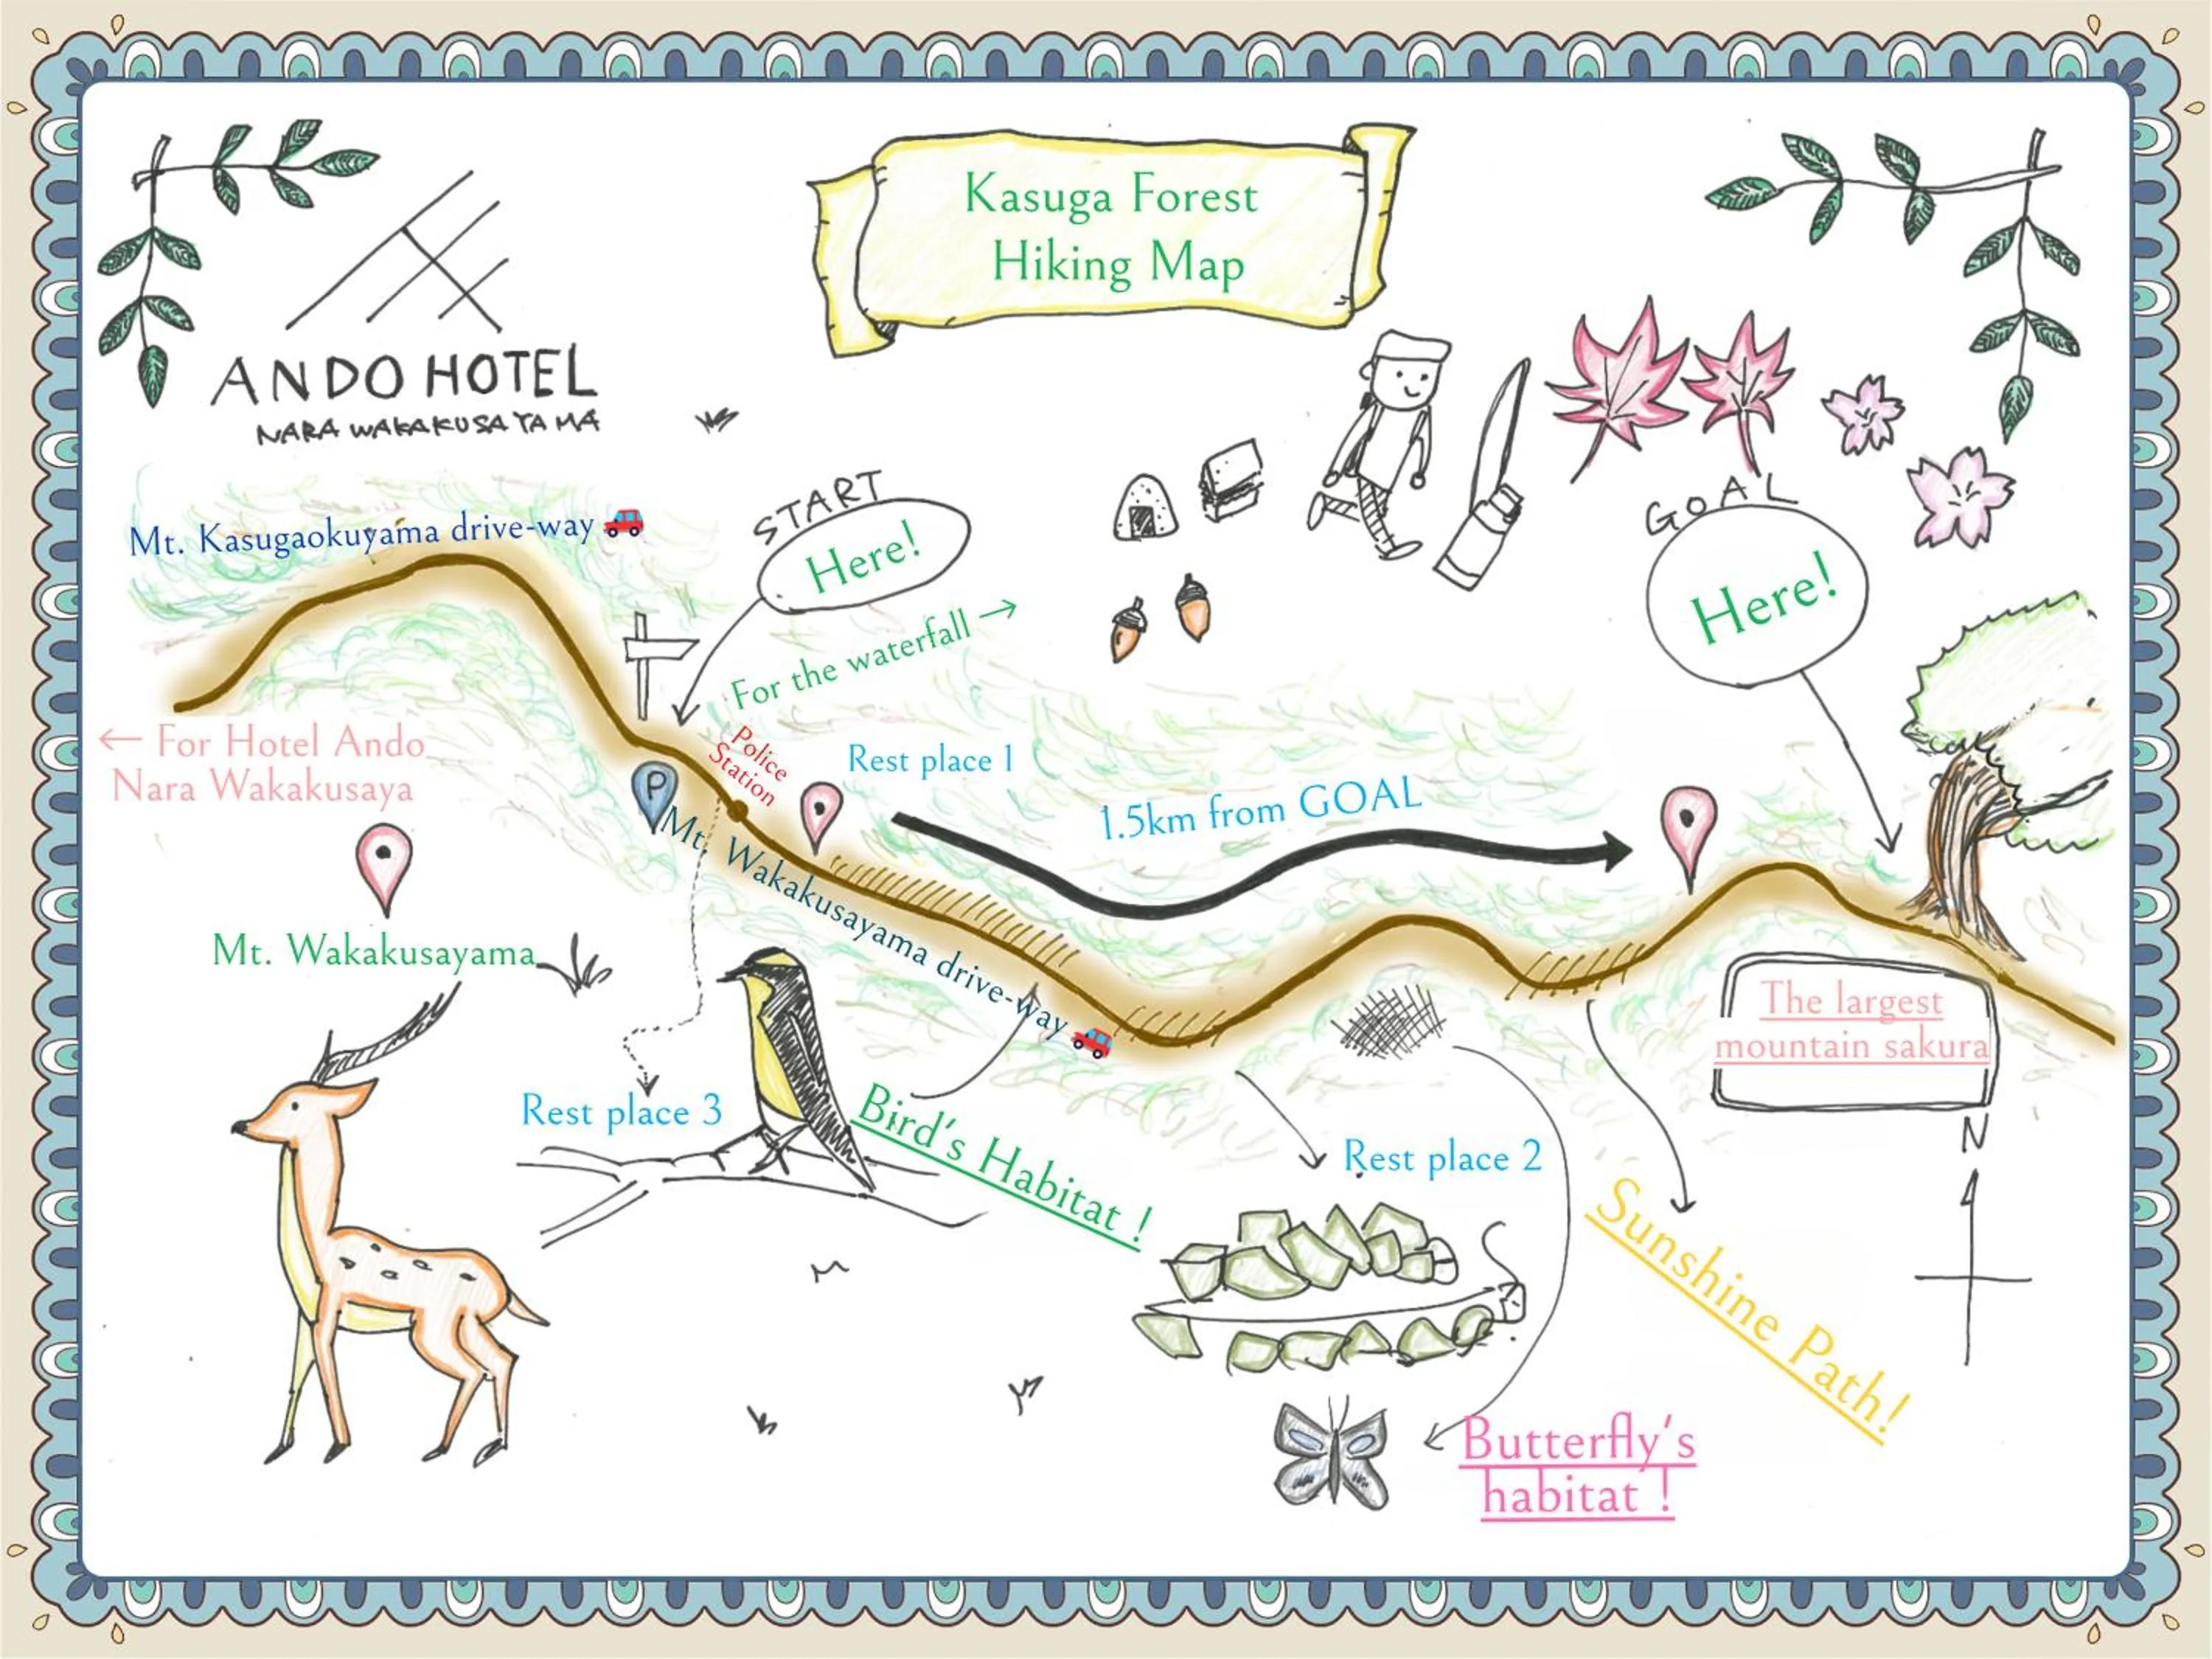 Kasuga Forest
Hiking Map
ANDO HOTEL
NARA WAKAKUSAYAMA
Mt. Kasugaokuyama drive-way
START
Here!
For the waterfall →
GOAL
Here!
← For Hotel Ando
Nara Wakakusaya
Police
Station
P
Rest place 1
1.5km from GOAL
Mt. Wakakusayama drive-way
Mt. Wakakusayama
The largest
mountain sakura
Rest place 3
Bird's Habitat !
Rest place 2
N
Sunshine Path!
Butterfly's
habitat !